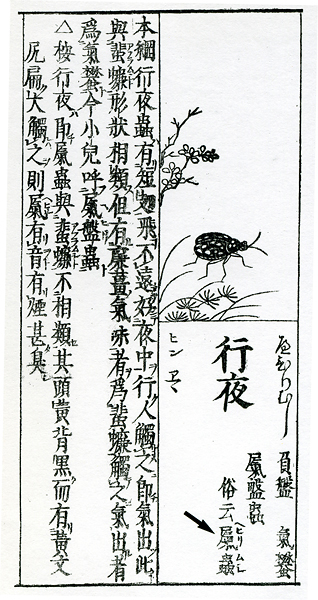 へひりむし 負盤 氣蠜
行夜 屁盤蟲
ヒン ヱヽ 俗云屁蟲 ヘヒリムシ
本綱行夜蟲有短翅飛不遠好夜中行人觸之即氣出此
與蜚蠊形狀相類但有廉薑氣味者爲蜚蠊觸之氣出者
爲氣蠜今小兒呼屁盤蟲
△按行夜即屁蟲與蜚蠊不相類其頭黄背黒而有黄文
尻扁大觸之則屁有音有煙甚臭